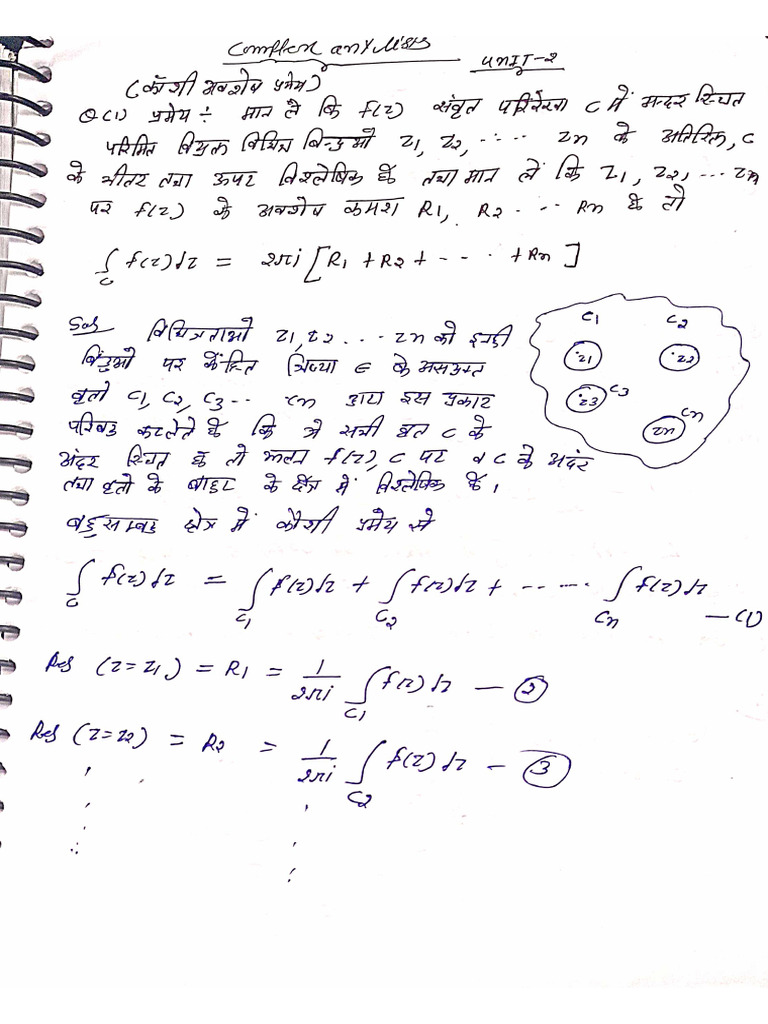 Complex anylisis
UNIT-2
(कॉशी अवशेष प्रमेय)
Q(1) प्रमेय ÷ मान ले कि f(z) संवृत परिरेखा C में अन्दर स्थित
परिमित वियुक्त विचित्र बिन्दुओ z1, z2, ..... zn के अतिरिक्त, C
के भीतर तथा ऊपर विश्लेषिक है तथा मान लें कि z1, z2, ... zn
पर f(z) के अवशेष क्रमश R1, R2 ... Rn है तो
∫c f(z)dz = 2πi [R1 + R2 + - - · + Rn]
Sol विचित्रताओ z1, z2 ... zn को इनही
बिंदुओ पर केंद्रित त्रिज्या ∈ के असंयुक्त
वृतो C1, C2, C3 .. cn द्वारा इस प्रकार
परिबद्ध कर लेते है कि ये सभी वृत C के
अंदर स्थित है तो फलन f(z), C पर व C के अदंर
तथा वृतो के बाहर के क्षेत्र में विश्लेषिक है।
C1 C2
z1 z2
z3 C3
zn Cn
बहु सम्बद्ध क्षेत्र में कौशी प्रमेय से
∫c f(z)dz = ∫C1 f(z)dz + ∫C2 f(z)dz + ..... ∫Cn f(z)dz — (1)
Res (z=z1) = R1 = 1/2πi ∫C1 f(z)dz — (2)
Res (z=z2) = R2 = 1/2πi ∫C2 f(z)dz — (3)